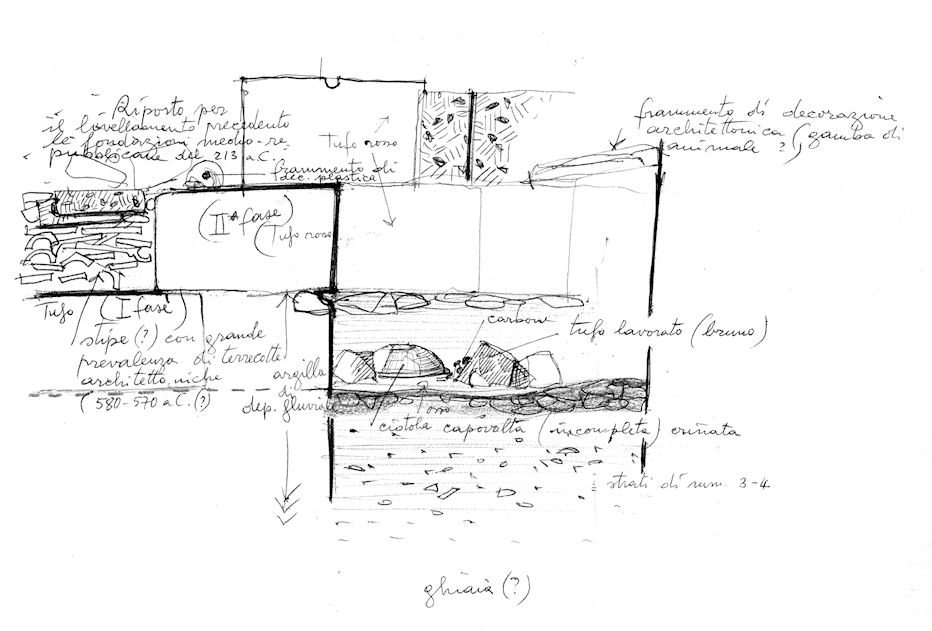 Riposto per
il livellamento precedente
le fondazioni medio-re-
pubblicane del 213 a.C.
Tufo roso
frammento di
dec. plastica
frammento di decorazione
architettonica (gamba di
animale ?)
(IIª fase)
(Tufo roso
Tufo
(I fase)
stipe (?) con grande
prevalenza di terrecotte
architettoniche
(580-570 a.C. (?)
argilla
di
dep. fluviale
carbone
tufo lavorato (bruno)
osso
ciotola capovolta (incompleta)
strati di num. 3-4
ghiaia (?)